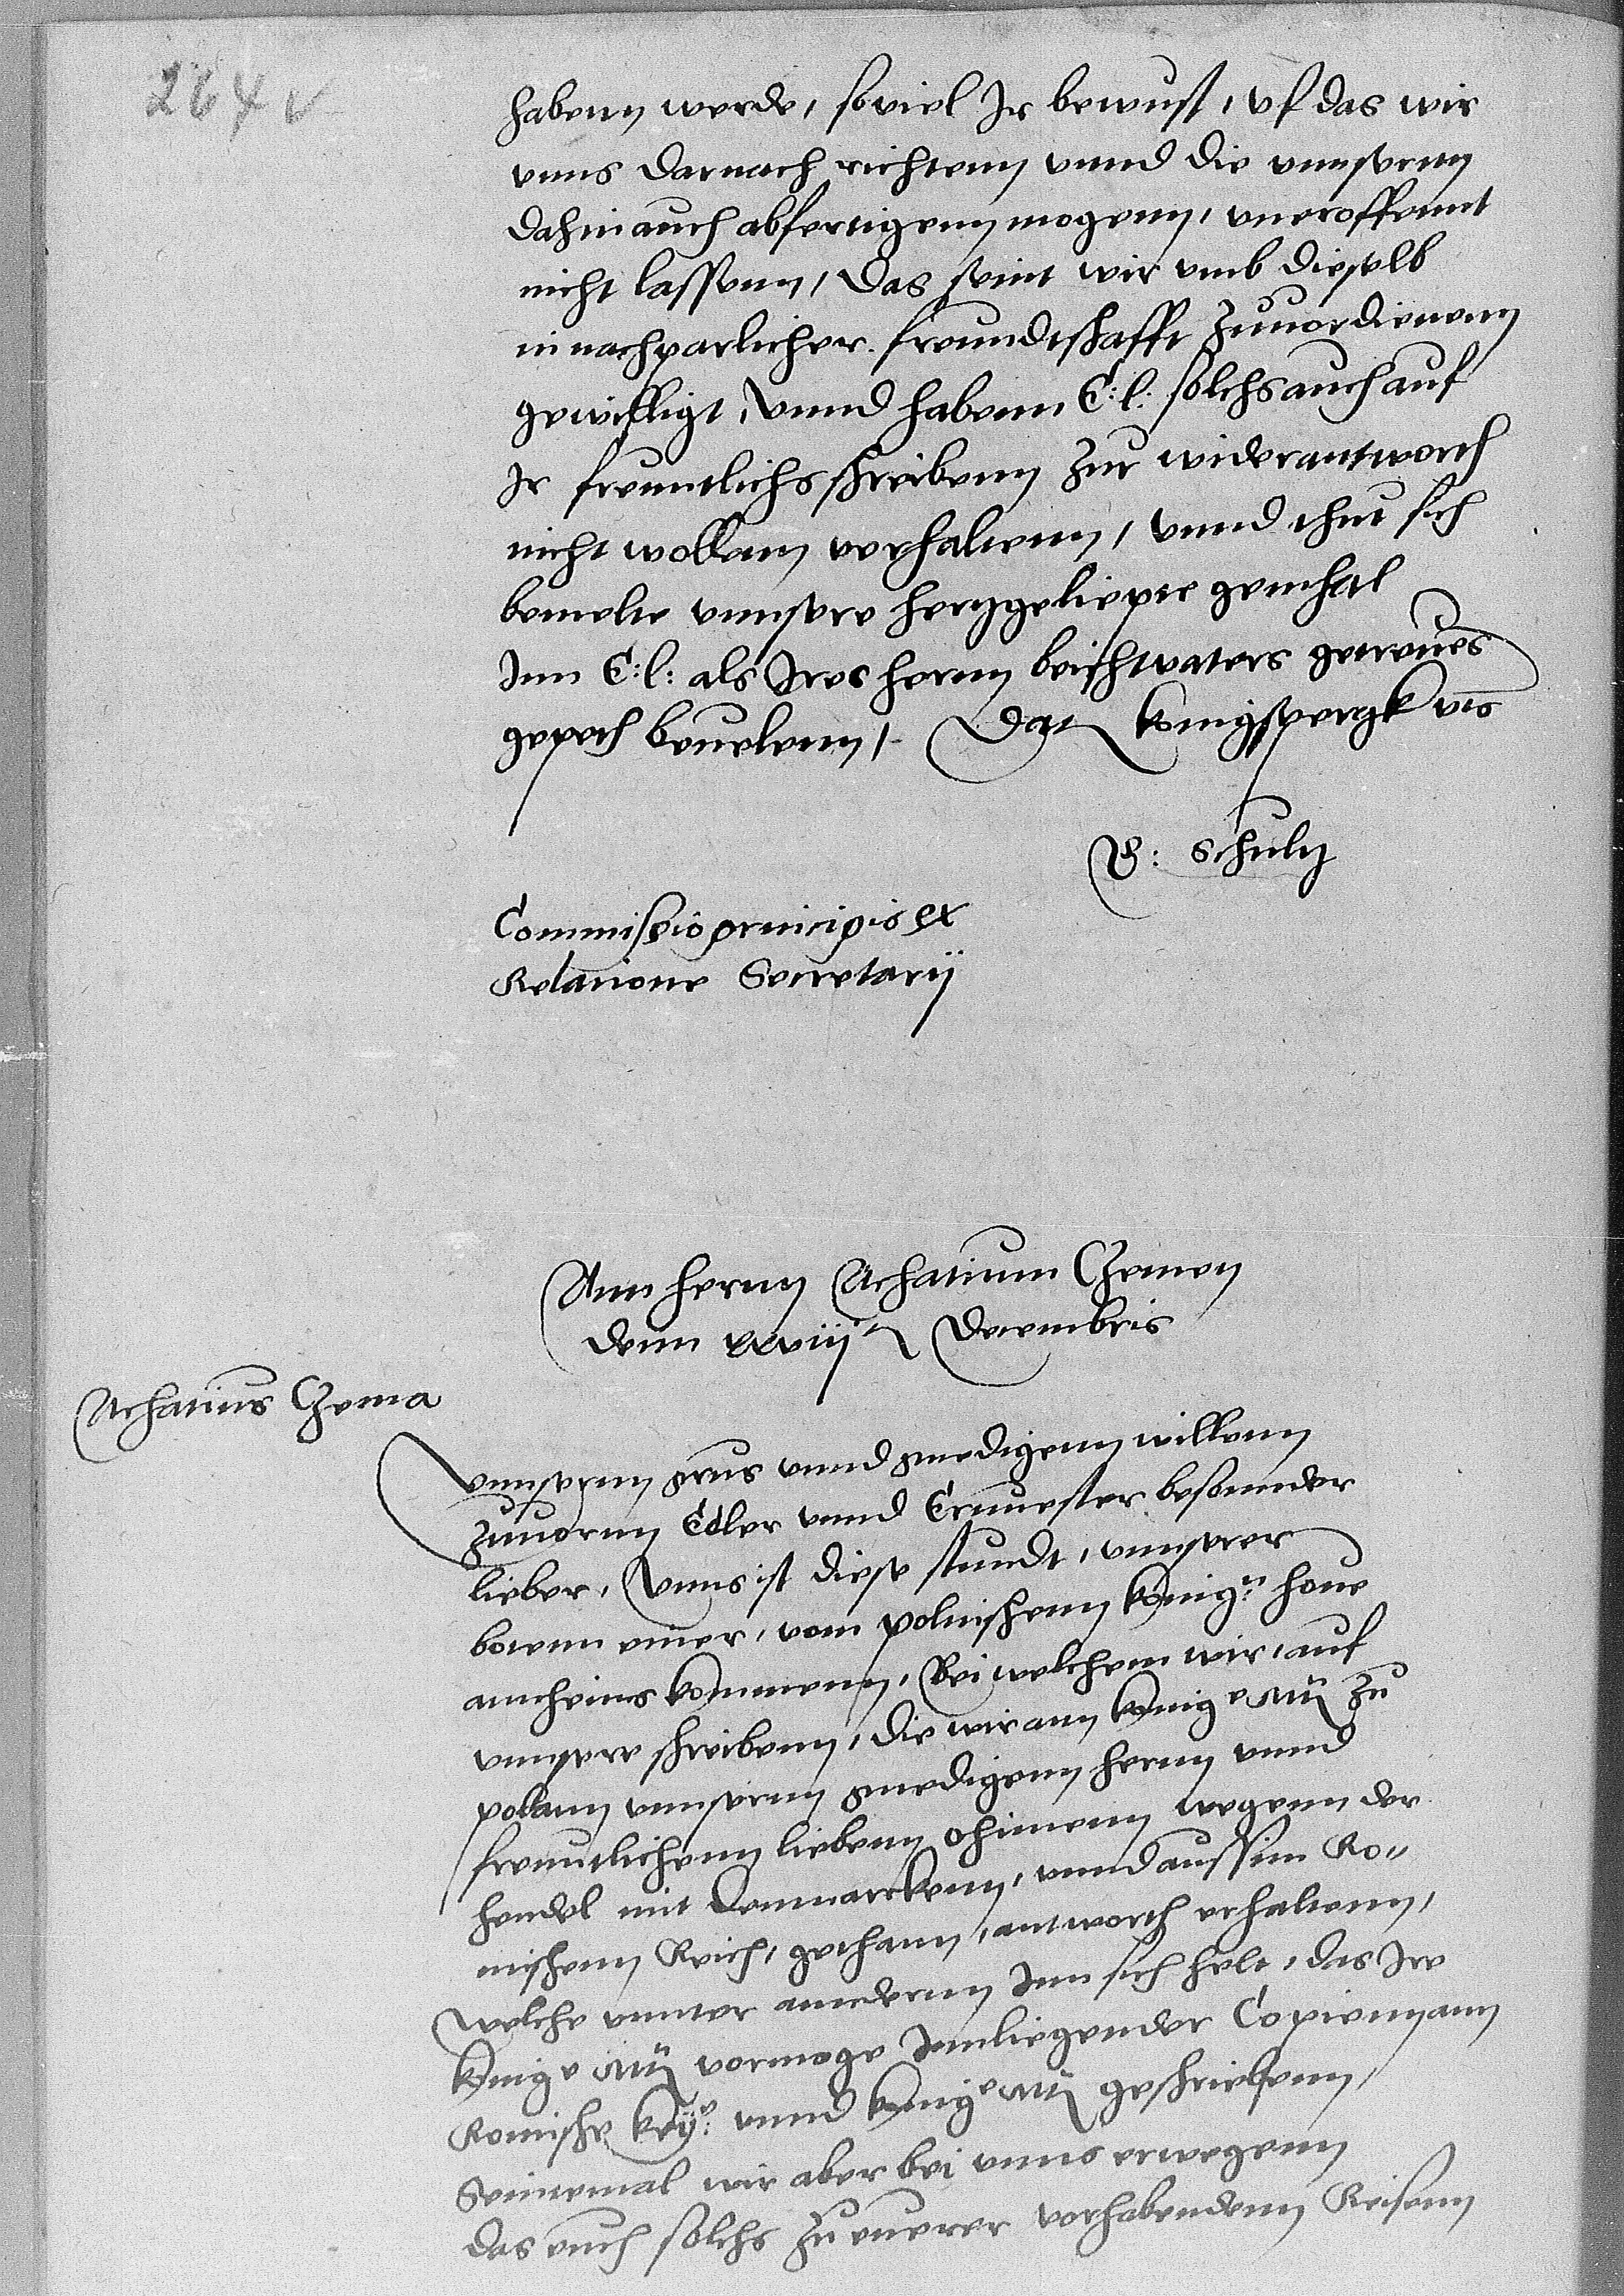 264 v
habenn werde, souiel Ir bewust, vf das wir
vnns darnach richtenn vnnd die vnnsernn
dahin auch abfertigenn mogenn, vneroffennt
nicht lassenn, Das seint wir vmb dieselb
in nachparlicher freundtschafft zuuordienenn
gewilligt, Vnnd habenn E: l: solchs auch auf
Ir freuntlichs schreibenn zur widerantworth
nicht wollenn verhaltenn, Vnnd thut sich
bemelte vnnsere hertzgeliepte gemhal
Inn E: l: als Ires hernn beichtvaters getreues
gepeth beuelenn, Dat Konigspergk vts
B: Schultz
Commissio principis ex
Relatione Secretarij
Ann hernn Achatium Czemen
denn xxviij Decembris
Achatius Czema
Vnnsernn grus vnnd gnedigenn willenn
zuuornn Edler vnnd Ernuester besonnder
lieber, Vnns ist diese stundt, vnnserer
botenn einer, vom polnischenn Konign: houe
anheims kommenn, Bei welchem wir, auf
vnnsere schreibenn, die wir ann Konige Mt zu
polann vnnsernn gnedigenn hernn vnnd
freuntlichenn liebenn ohimenn wegenn der
hendel mit Denmarckenn, vnnd aussim Ro„
mischenn Reich, gethann, antworth erhaltenn,
Welche vnnter anndernn Inn sich helt, das Ire
Konige Mt vormoge Innliegender Copienn ann
Romische Keye: vnnd Konige Mt geschriebenn,
Seintemal wir aber bei vnns erwegenn
das euch solchs zu euerer vorhabendenn Reisenn